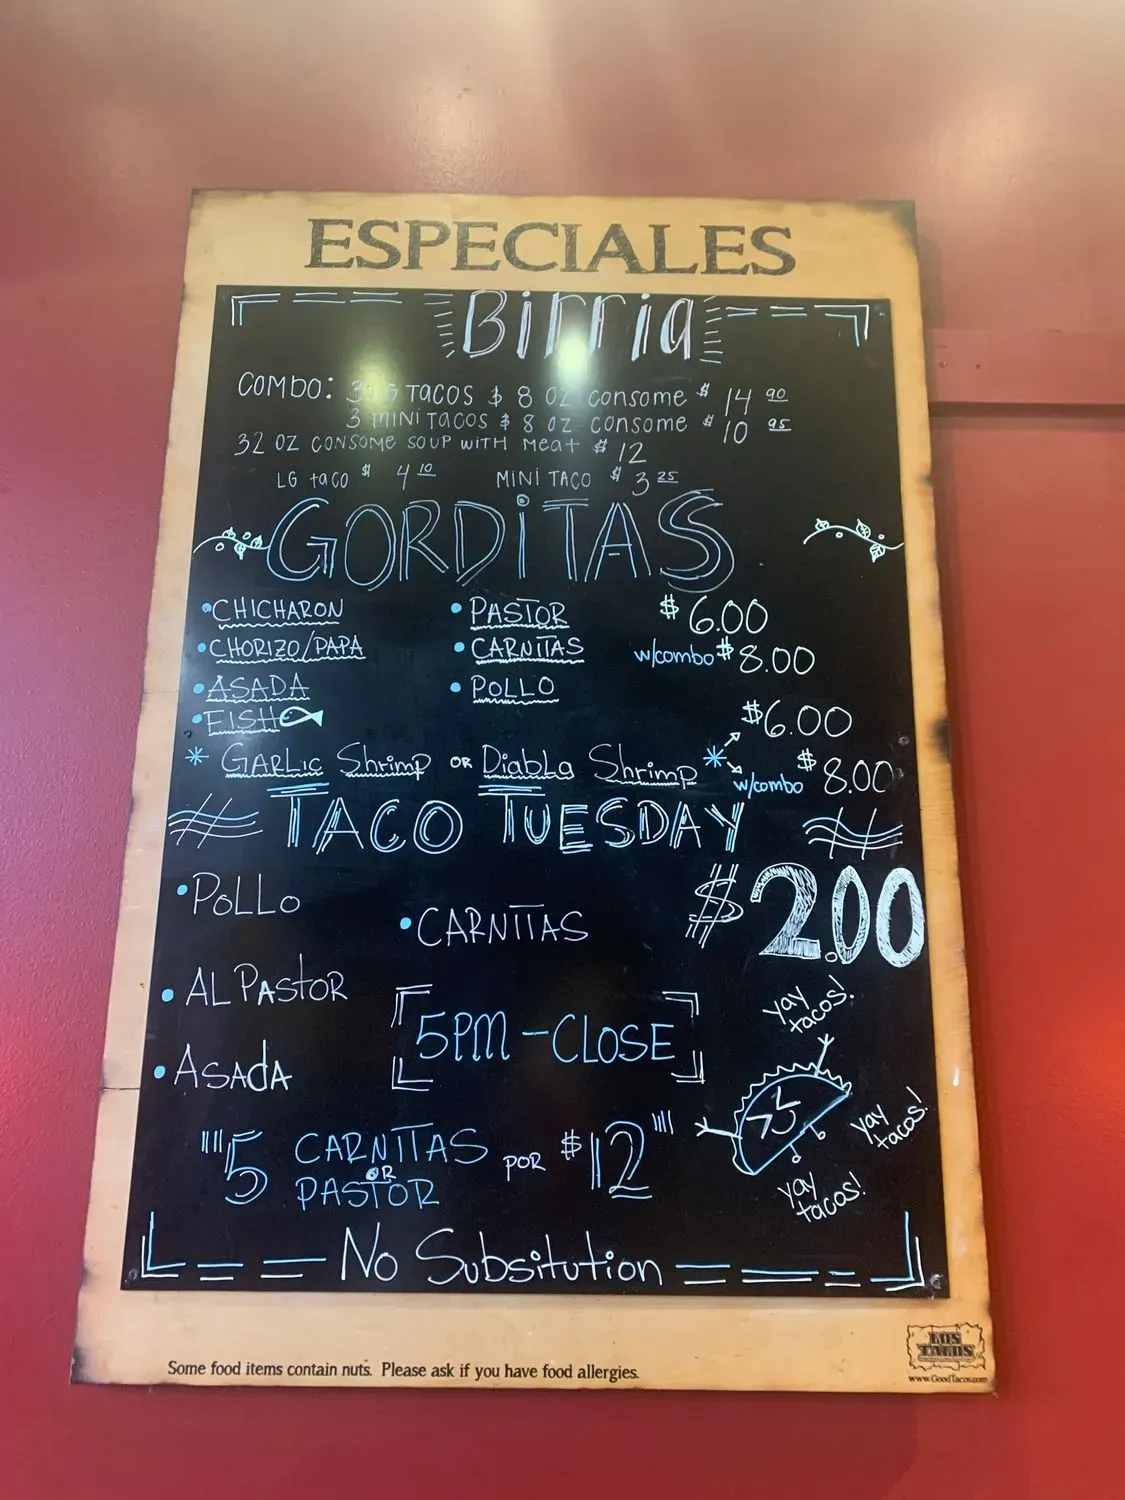 ESPECIALES
Birria
COMBO: 3 LG TACOS $ 8 OZ consome $ 14 90
3 MINI TACOS $ 8 OZ consome $ 10 95
32 OZ CONSOME SOUP WITH meat $ 12
LG taco $ 4 10 MINI TACO $ 3 25
GORDiTAS
•CHICHARON •PASTOR $6.00
•CHORIZO/PAPA •CARNITAS w/combo $8.00
•ASADA •POLLO
•FISH $6.00
* GARLic Shrimp OR Diabla Shrimp * w/combo $8.00
TACO TUESDAY
•POLLO $2.00
•CARNITAS
•AL PAStOR
yay tacos!
5PM - CLOSE
•ASAdA
yay tacos!
5 CARNITAS OR PASTOR POR $12
yay tacos!
No Subsitution
Some food items contain nuts. Please ask if you have food allergies.
LOS TACOS
www.GoodTacos.com